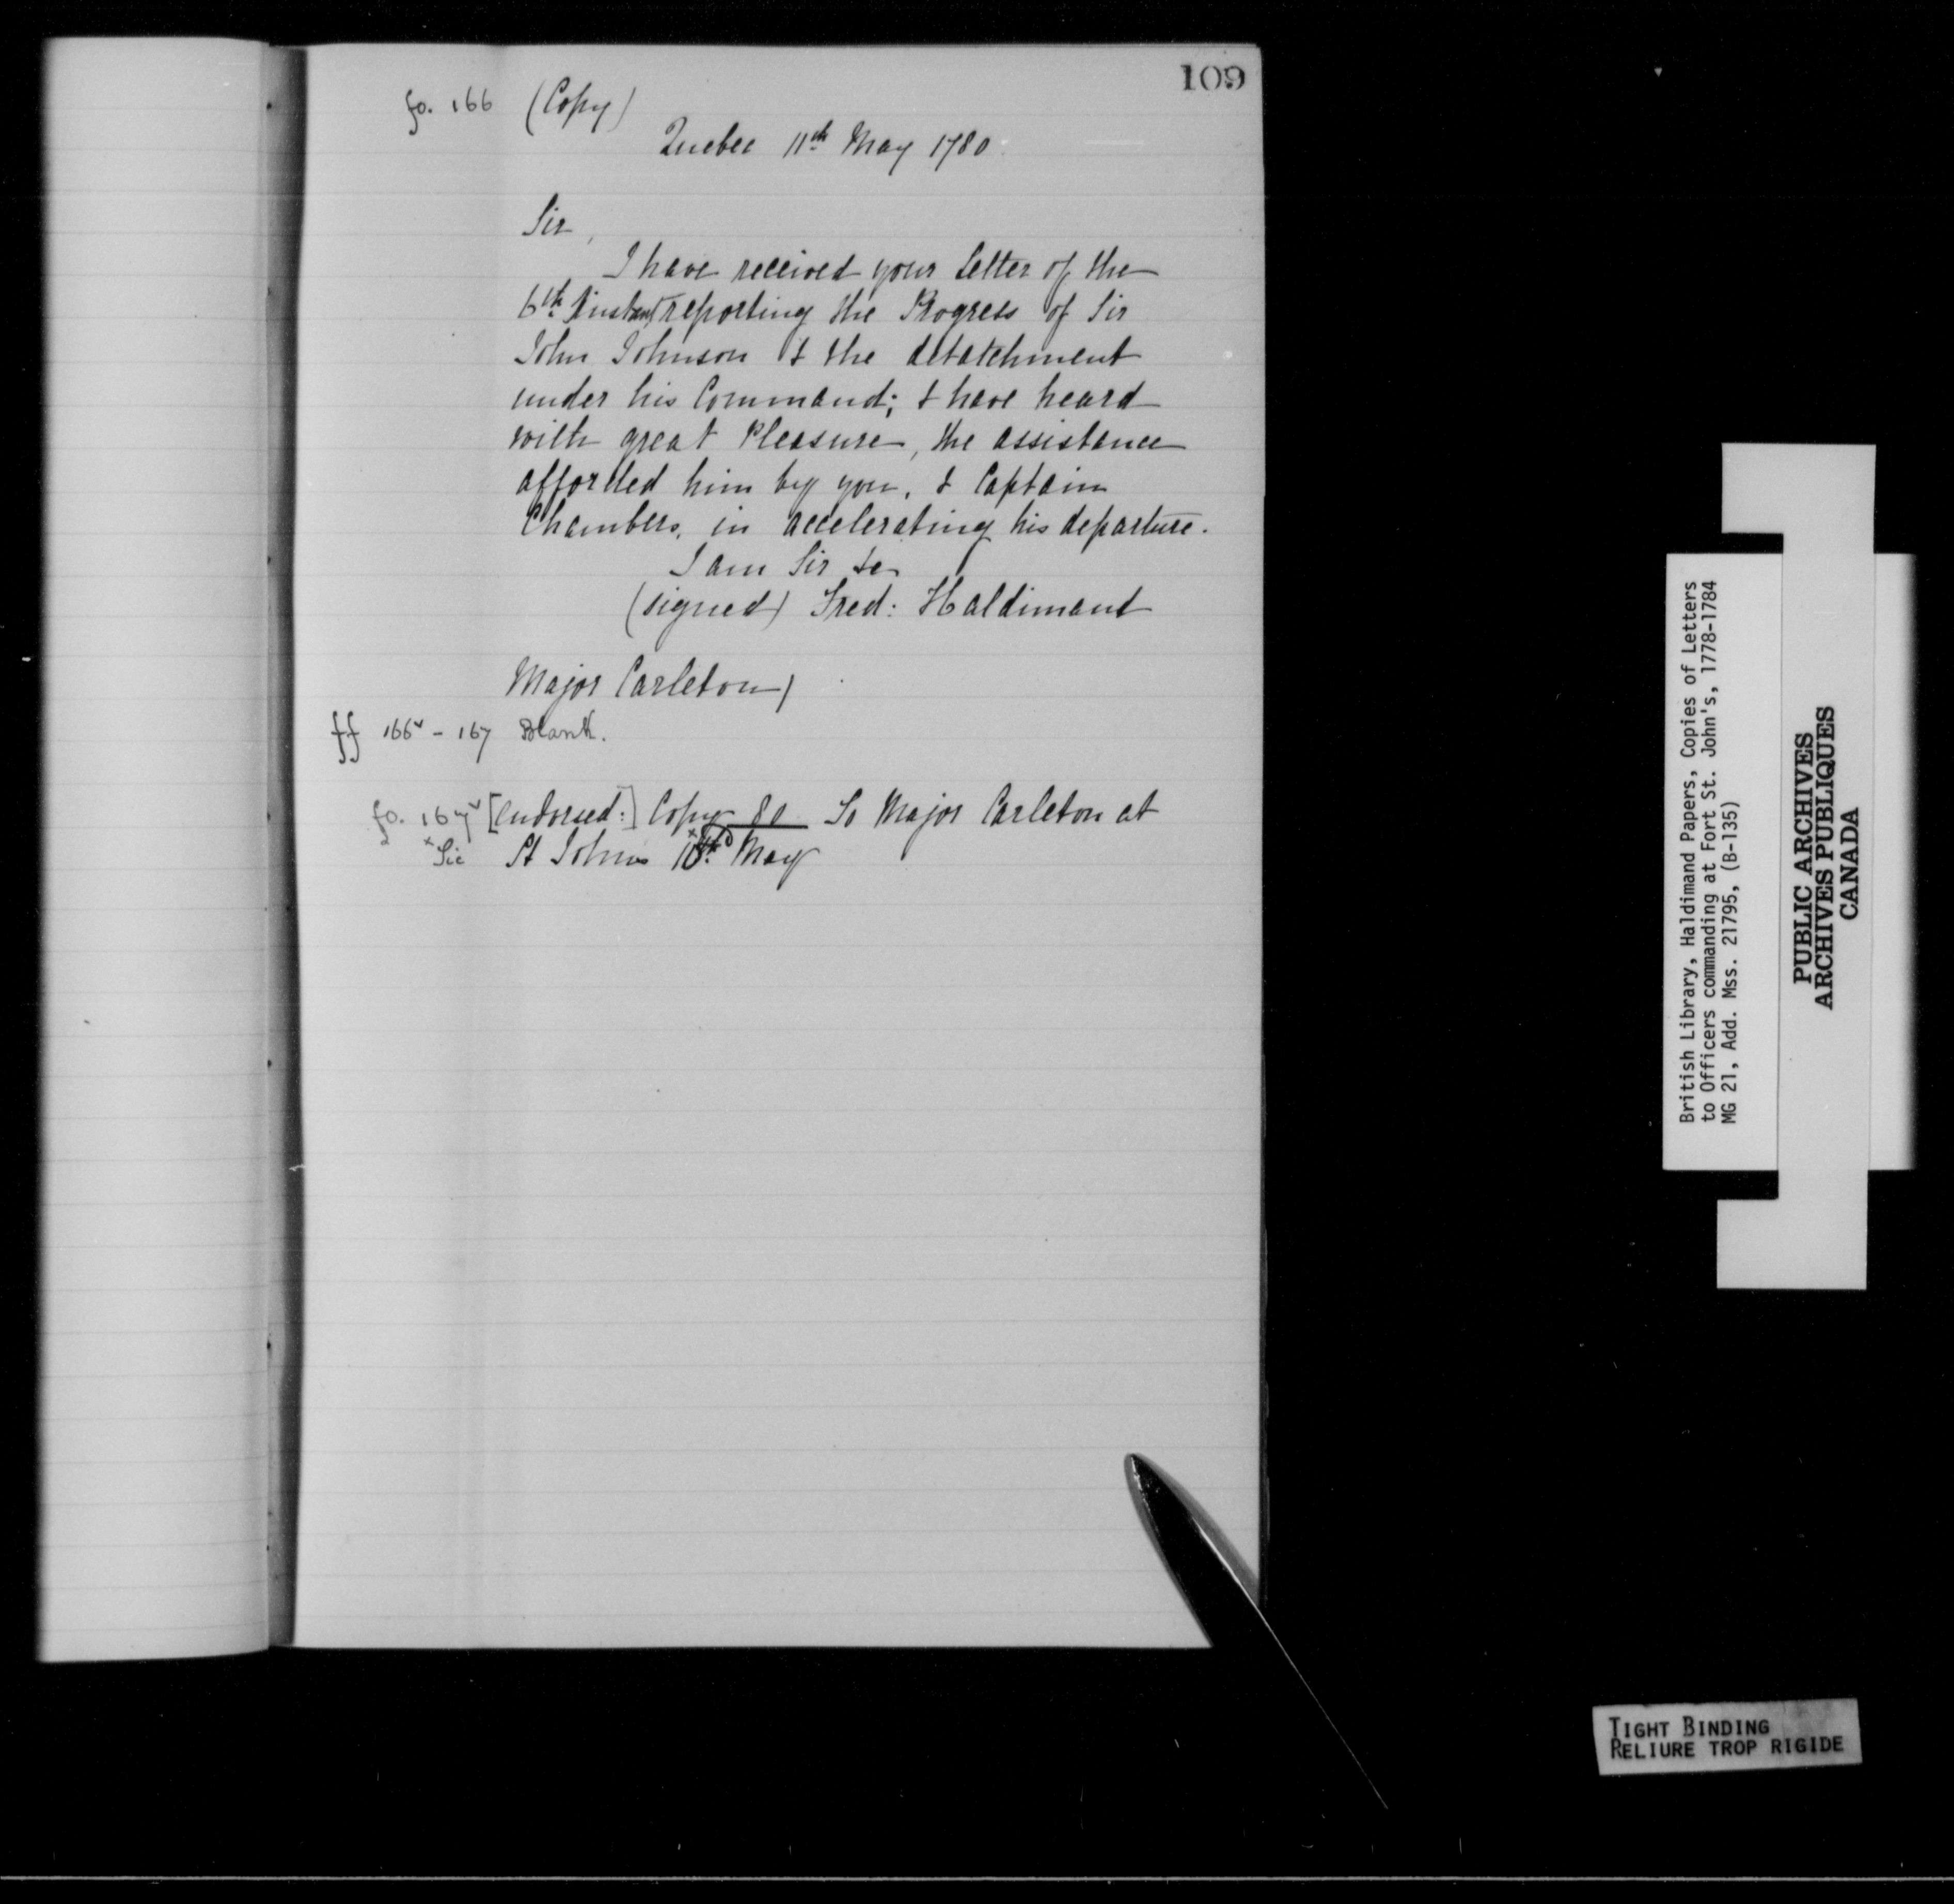 109
fo. 166 (Copy)
Quebec 11th May 1780
Sir,
I have received your Letter of the
6th Instant reporting the Progress of Sir
John Johnson & the detatchment
under his Command; & have heard
with great Pleasure, the assistance
afforded him by you, & Captain
Chambers, in accelerating his departure.
I am Sir &c
(signed) Fred: Haldimand
Major Carleton)
ff 166v - 167 Blank.
fo. 167v [endorsed:] Copy 80 To Major Carleton at
x Sic St Johns May
British Library, Haldimand Papers, Copies of Letters
to Officers commanding at Fort St. John's, 1778-1784
MG 21, Add. Mss. 21795, (B-135)
PUBLIC ARCHIVES
ARCHIVES PUBLIQUES
CANADA
TIGHT BINDING
RELIURE TROP RIGIDE